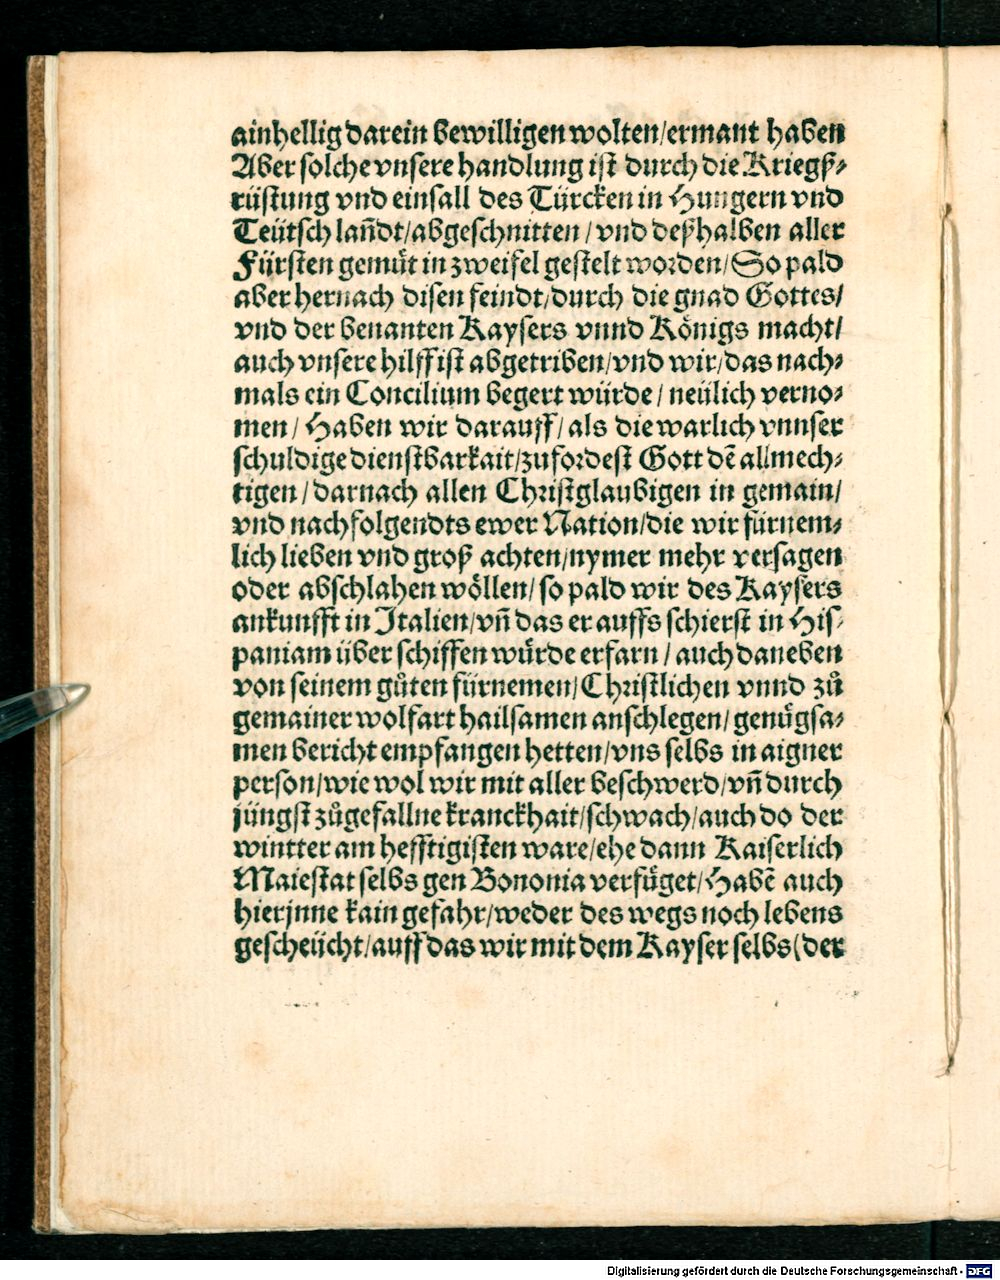 ainhellig darein bewilligen wolten/ermant haben
Aber solche vnsere handlung ist durch die Kriegß⸗
rüstung vnd einfall des Türcken in Hungern vnd
Teütsch lañdt/abgeschnitten/vnd deßhalben aller
Fürsten gemuͤt in zweifel gestelt worden/So pald
aber hernach disen feindt/durch die gnad Gottes/
vnd der benanten Kaysers vnnd Koͤnigs macht/
auch vnsere hilff ist abgetriben/vnd wir/das nach⸗
mals ein Concilium begert würde/neülich verno⸗
men/Haben wir darauff/als die warlich vnnser
schuldige dienstbarkait/zufordest Gott dē allmech⸗
tigen/darnach allen Christglaubigen in gemain/
vnd nachfolgendts ewer Nation/die wir fürnem⸗
lich lieben vnd groß achten/nymer mehr versagen
oder abschlahen woͤllen/so pald wir des Kaysers
ankunfft in Italien/vñ das er auffs schierst in His⸗
paniam über schiffen würde erfarn/auch daneben
von seinem guͦten fürnemen/Christlichen vnnd zuͦ
gemainer wolfart hailsamen anschlegen/genuͤgsa⸗
men bericht empfangen hetten/vns selbs in aigner
person/wie wol wir mit aller beschwerd/vñ durch
jüngst zuͦgefallne kranckhait/schwach/auch do der
wintter am hefftigisten ware/ehe dann Kaiserlich
Maiestat selbs gen Bononia verfuͤget/Habē auch
hierjnne kain gefahr/weder des wegs noch lebens
gescheücht/auff das wir mit dem Kayser selbs(der
Digitalisierung gefördert durch die Deutsche Forschungsgemeinschaft - DFG